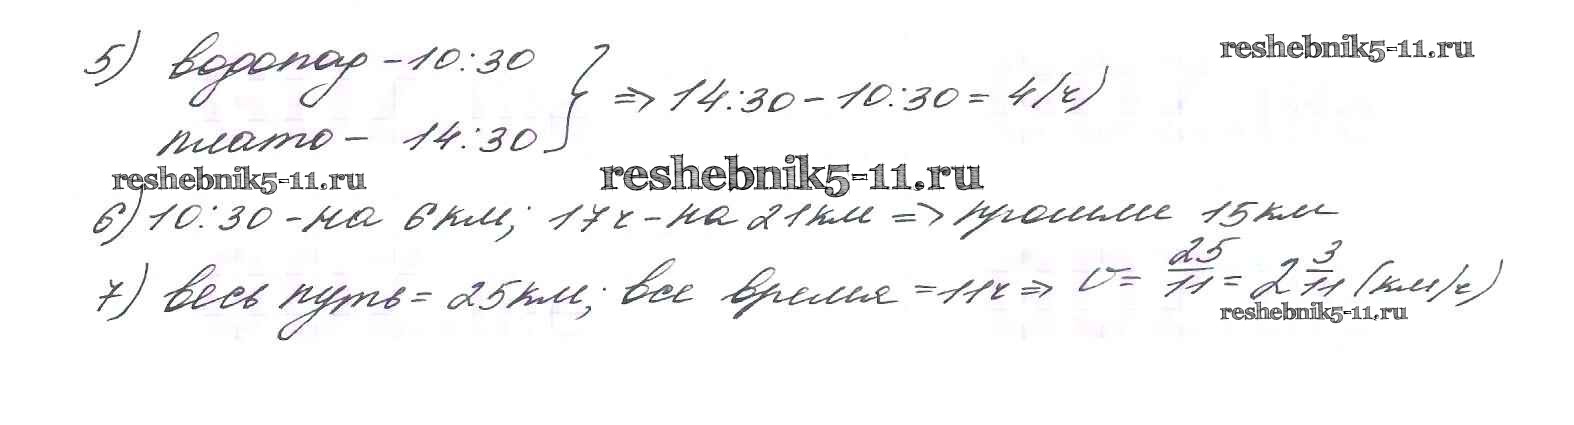 reshebnik5-11.ru
5) водопад - 10:30
плато - 14:30 } => 14:30 - 10:30 = 4(ч)
reshebnik5-11.ru
reshebnik5-11.ru
6) 10:30 - на 6 км; 17ч - на 21 км => прошли 15 км
7) весь путь = 25 км; все время = 11ч => v = 25/11 = 2 3/11 (км/ч)
reshebnik5-11.ru